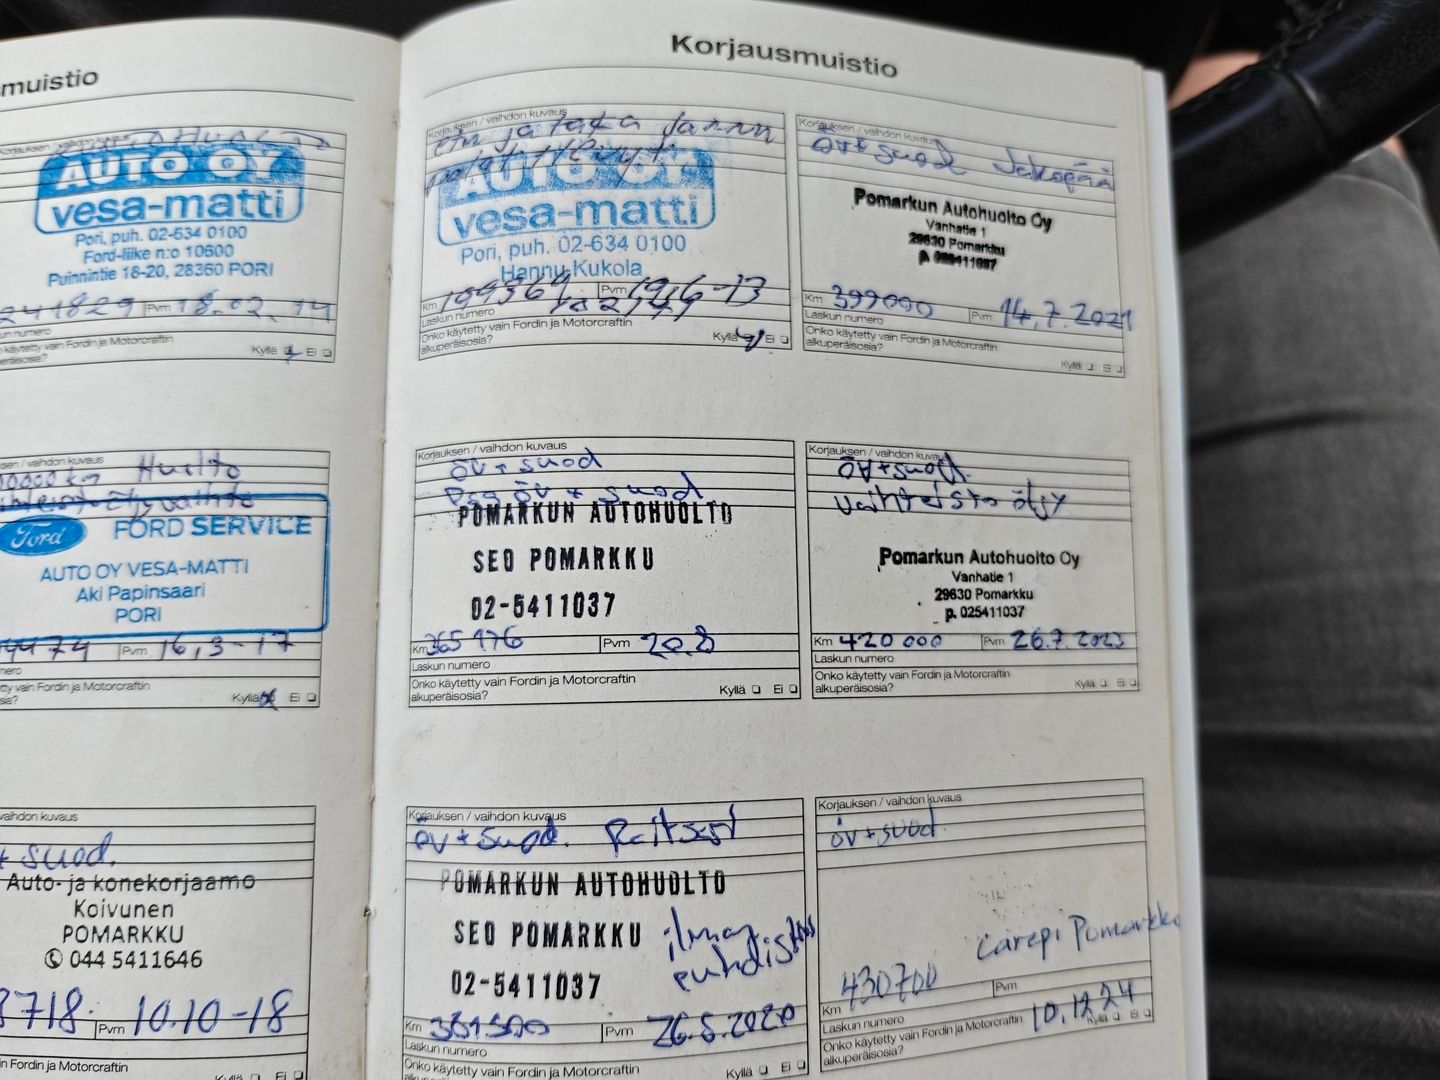 muistio
AUTO OY
vesa-matti
Pori, puh. 02-634 0100
Ford-liike n:o 10600
Puinnintie 18-20, 28360 PORI
241829 Pvm 18.02.14
un numero
käytetty vain Fordin ja Motorcraftin
Kyllä Ei
vaihdon kuvaus
Huolto
Ford FORD SERVICE
AUTO OY VESA-MATTI
Aki Papinsaari
PORI
Pvm 16,3-17
mero
tty vain Fordin ja Motorcraftin
Kyllä Ei
vaihdon kuvaus
+ suod.
Auto- ja konekorjaamo
Koivunen
POMARKKU
044 5411646
8718. Pvm 10.10-18
in Fordin ja Motorcraftin
Kyllä Ei
Korjausmuistio
Korjauksen / vaihdon kuvaus
etu ja taka jarru
AUTO OY
vesa-matti
Pori, puh. 02-634 0100
Hannu Kukola
Km 199369 Pvm 19.6-13
Laskun numero
Onko käytetty vain Fordin ja Motorcraftin
alkuperäisosia? Kyllä Ei
Korjauksen / vaihdon kuvaus
öv+suod Jakopää
Pomarkun Autohuolto Oy
Vanhatie 1
29630 Pomarkku
Km 399000 Pvm 14.7.2021
Laskun numero
Onko käytetty vain Fordin ja Motorcraftin
alkuperäisosia? Kyllä Ei
Korjauksen / vaihdon kuvaus
öv + suod
öv + suod
POMARKUN AUTOHUOLTO
SEO POMARKKU
02-5411037
Km 365 176 Pvm 20.8
Laskun numero
Onko käytetty vain Fordin ja Motorcraftin
alkuperäisosia? Kyllä Ei
Korjauksen / vaihdon kuvaus
öv+suod.
vaihteisto öljy
Pomarkun Autohuolto Oy
Vanhatie 1
29630 Pomarkku
p. 025411037
Km 420 000 Pvm 26.7.2023
Laskun numero
Onko käytetty vain Fordin ja Motorcraftin
alkuperäisosia? Kyllä Ei
Korjauksen / vaihdon kuvaus
öv + suod. Raitist
POMARKUN AUTOHUOLTO
SEO POMARKKU
02-5411037
ilman
puhdistus
Km 381500 Pvm 26.5.2020
Laskun numero
Onko käytetty vain Fordin ja Motorcraftin
Kyllä Ei
Korjauksen / vaihdon kuvaus
öv + suod.
Carepi Pomarkku
Km 430700 Pvm 10.12.24
Laskun numero
Onko käytetty vain Fordin ja Motorcraftin
alkuperäisosia? Kyllä Ei